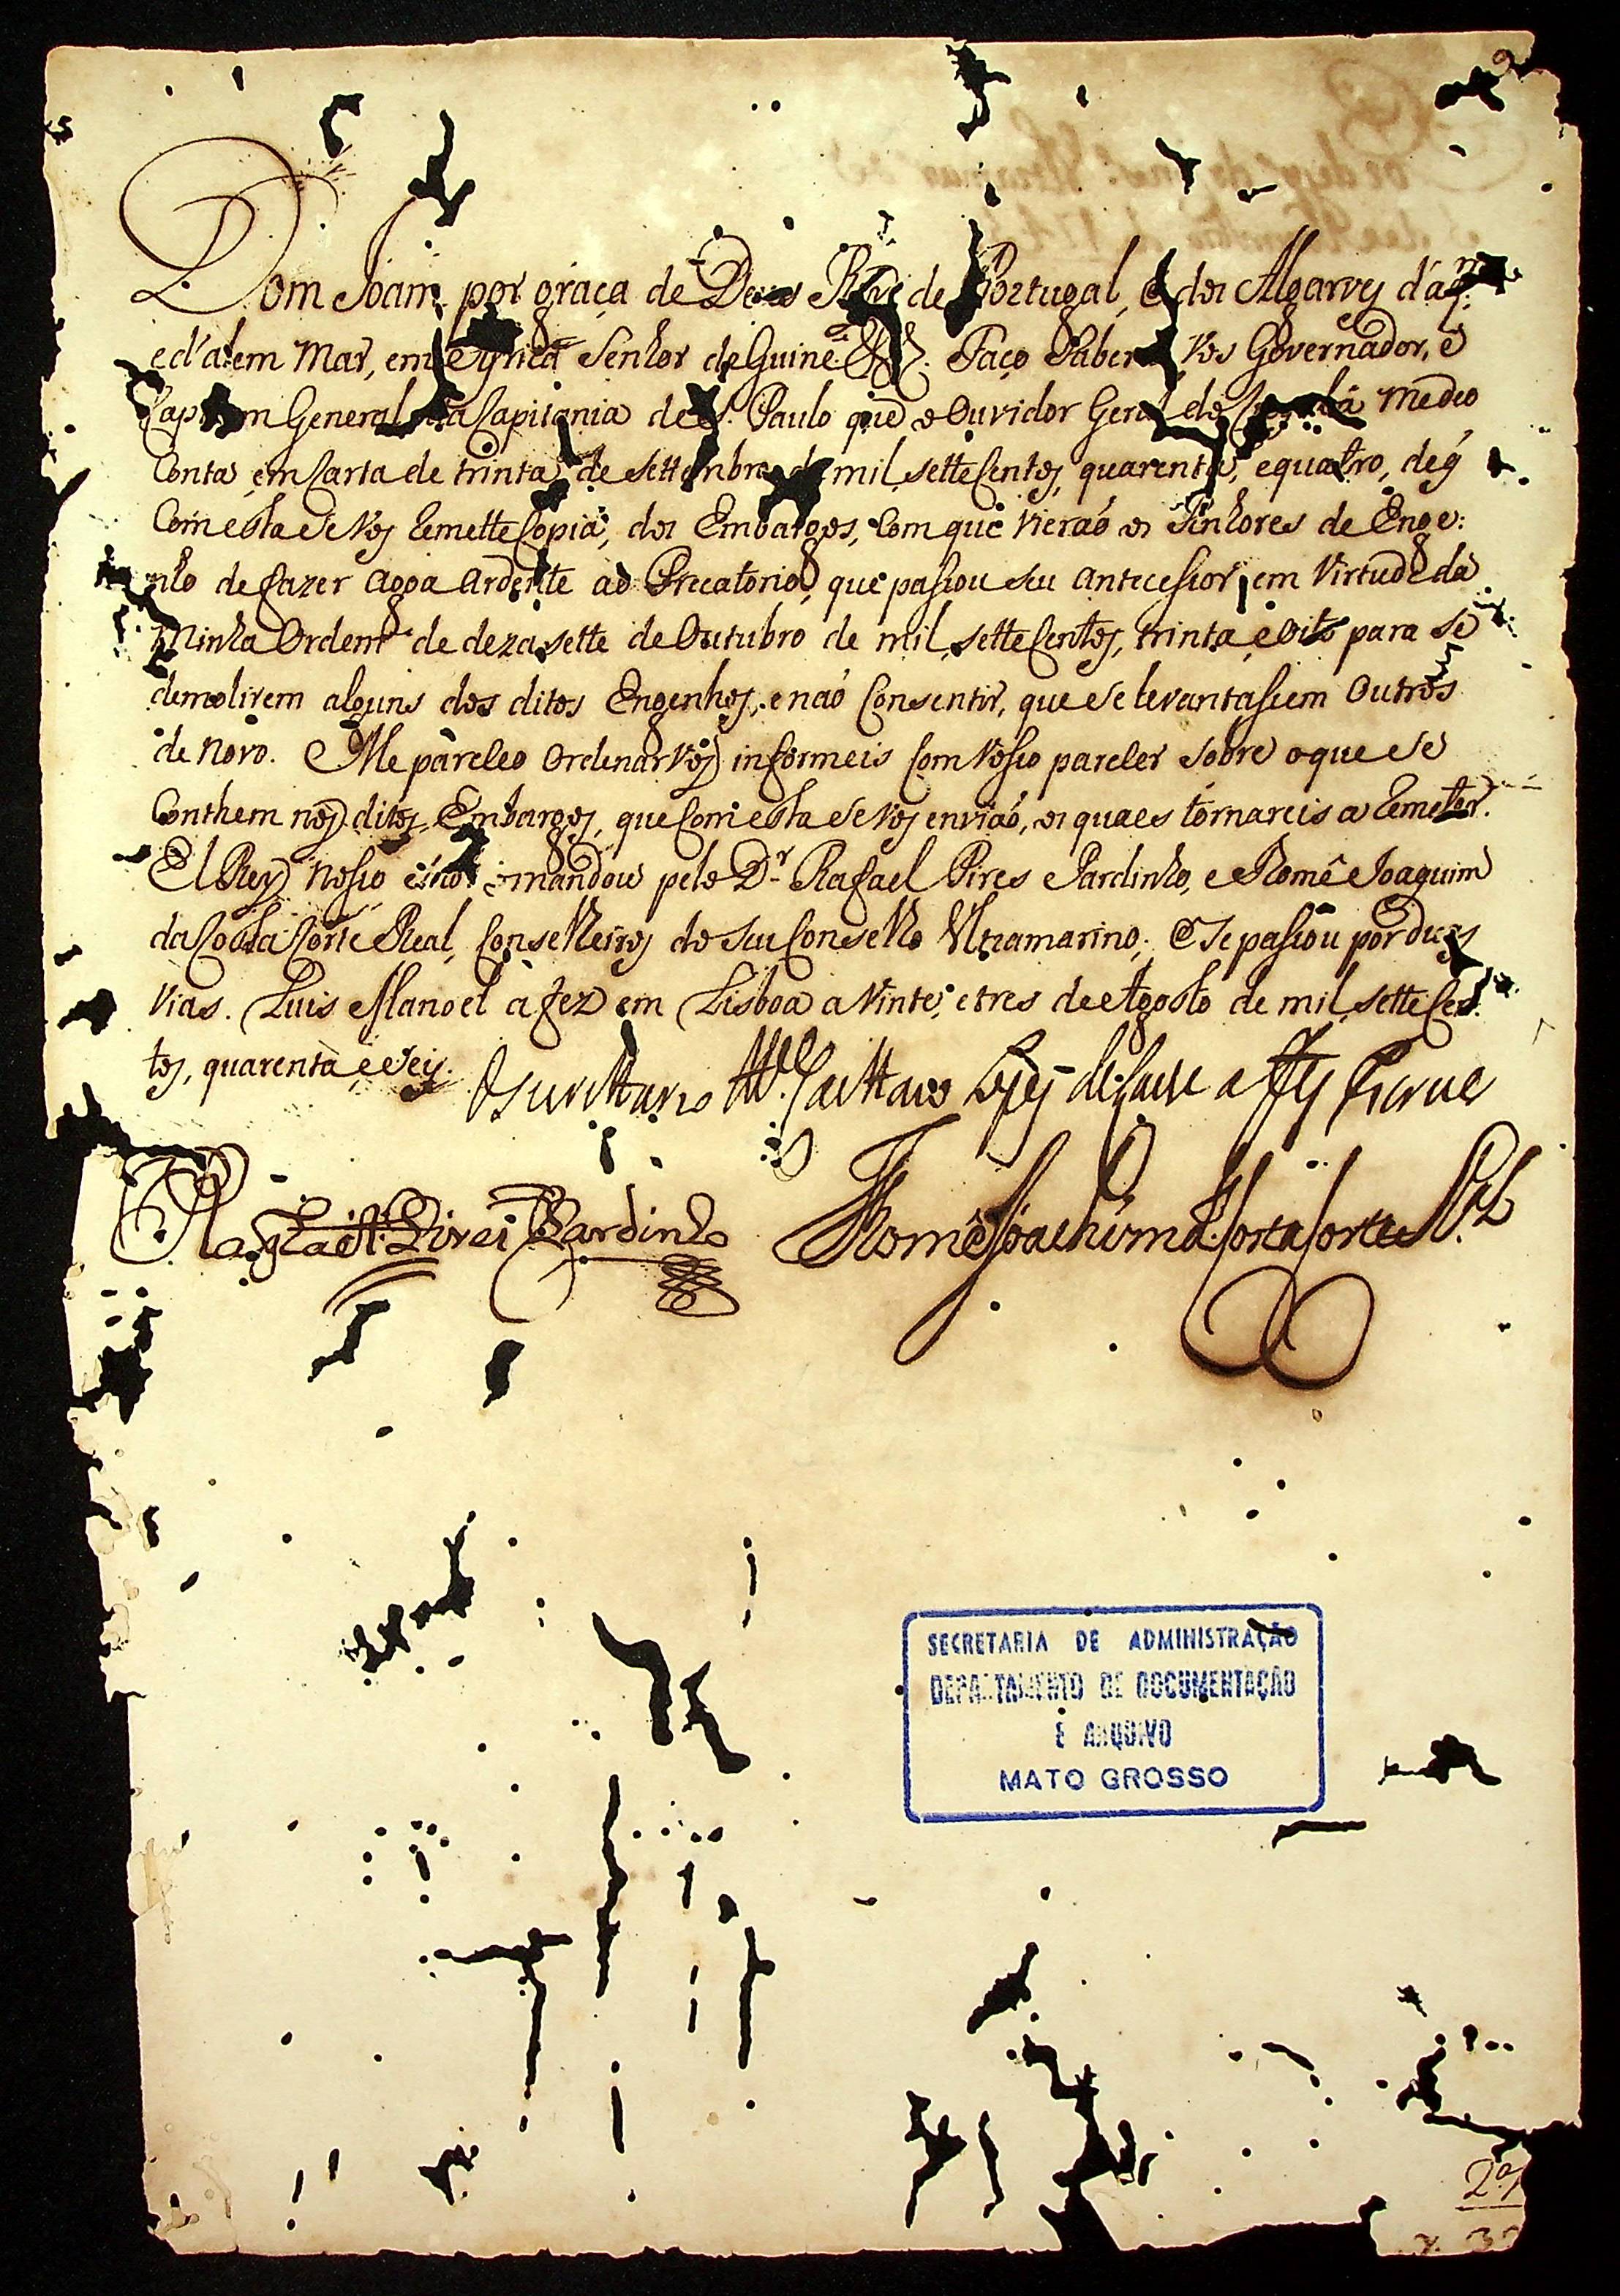 Dom Joam por graça de Deos Rey de Portugal, e dos Algarves d'aq.
ed'alem Mar, em Africa Senhor de Guiné &ª. Faço saber a Vos Governador, e
Capitam General da Capitania de S. Paulo que o Ouvidor Geral do Cuyabá me deo
Conta em Carta de trinta de Settembro de mil settecentos, quarenta, equatro, deq̃
Com esta se vos remette Copia, dos Embargos, Com que vieraõ os Senhores de Enge:
nho de fazer agoa Ardente ao Precatorio, que passou seu antecessor, em Virtude da
Minha Ordem de dezasette de Outubro de mil settecentos, trinta, eoito para se
demolirem alguns dos ditos Engenhos, enaõ Consentir, que se levantassem Outros
de novo. Me pareceo Ordenarvos informeis Com vosso parecer sobre oque se
Conthem nos ditos Embargos, que Com esta se vos enviaõ, os quaes tornareis a remeter.
ElRey nosso snõr mandou pelo D.r Rafael Pires Pardinho, e Thomé Joaquim
da Costa Corte Real, Conselheiros do seu Conselho Ultramarino, e se passou por duas
vias. Luis Manoel a fez em Lisboa a vinte, etres de Agosto de mil, settecen:
tos, quarenta, eseis.
M.el Caettano Lopes de Lavre a fes escrever
Rafael Pires Pardinho Thomé Joachim da Costa Corte R.l
SECRETARIA DE ADMINISTRAÇÃO
DEPARTAMENTO DE DOCUMENTAÇÃO
E ARQUIVO
MATO GROSSO
2ª